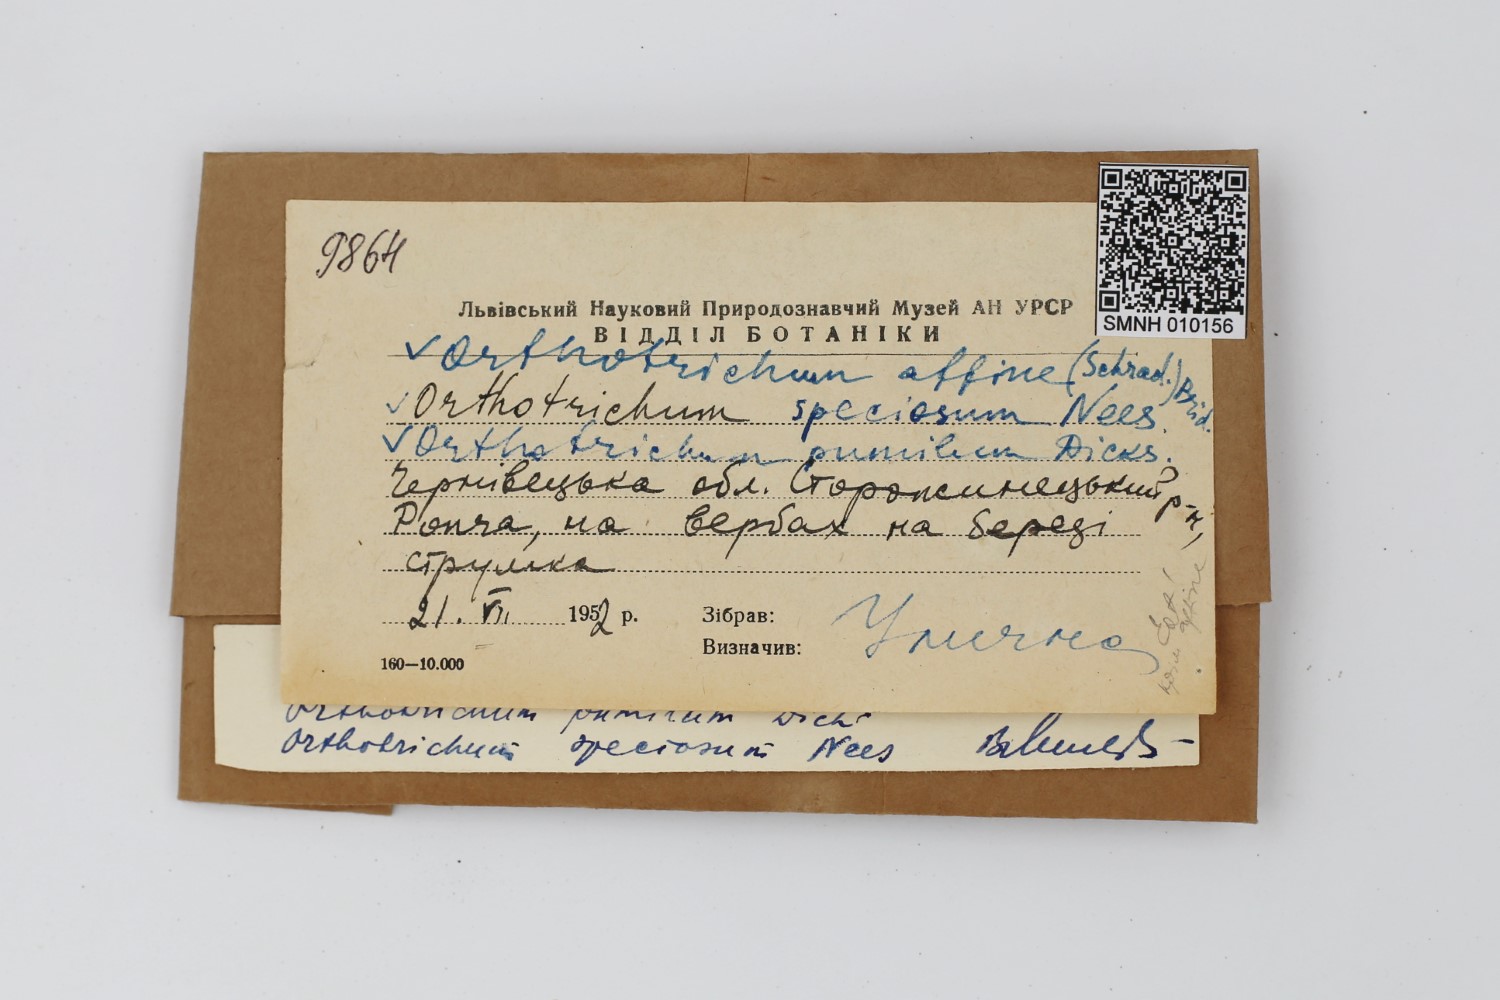 9864
SMNH 010156
Львівський Науковий Природознавчий Музей АН УРСР
ВІДДІЛ БОТАНІКИ
✓ Orthotrichum affine (Schrad.) Brid.
✓ Orthotrichum speciosum Nees.
✓ Orthotrichum pumilum Dicks.
Чернівецька обл. Сторожинецький р-н,
Ропча, на вербах на березі
струмка
21. VII 1952 р.
Зібрав:
Визначив:
160—10.000
affine
Orthotrichum pumilum Dicks
Orthotrichum speciosum Nees